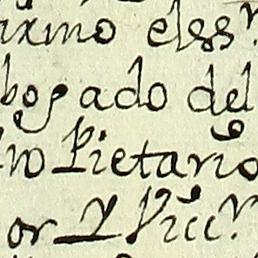 ixmo el ss.r
bogado del
io Pietario
or Y Vicc.r